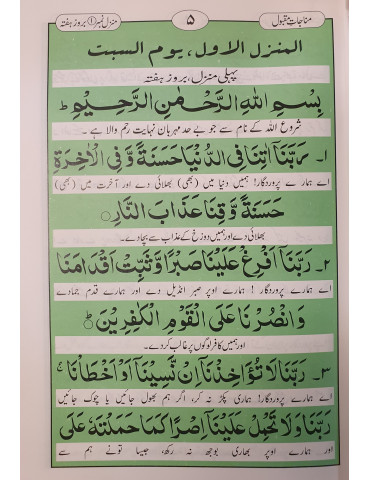 مناجات مقبول ۵ منزل نمبر ① بروز ہفتہ
المنزل الاول، یوم السبت
پہلی منزل، بروز ہفتہ
بِسْمِ اللهِ الرَّحْمٰنِ الرَّحِيْمِ ط
شروع اللہ کے نام سے جو بے حد مہربان نہایت رحم والا ہے۔
۱۔ رَبَّنَآ اٰتِنَا فِى الدُّنْيَا حَسَنَةً وَّفِى الْاٰخِرَةِ
اے ہمارے پروردگار! ہمیں دنیا میں (بھی) بھلائی دے اور آخرت میں (بھی)
حَسَنَةً وَّقِنَا عَذَابَ النَّارِ ○
بھلائی دے اور ہمیں دوزخ کے عذاب سے بچا دے۔
۲۔ رَبَّنَآ اَفْرِغْ عَلَيْنَا صَبْرًا وَّثَبِّتْ اَقْدَامَنَا
اے ہمارے پروردگار! ہمارے اوپر صبر انڈیل دے اور ہمارے قدم جمادے
وَانْصُرْنَا عَلَى الْقَوْمِ الْكٰفِرِيْنَ ○ ط
اور ہمیں کافر لوگوں پر غالب کر دے۔
۳۔ رَبَّنَا لَا تُؤَاخِذْنَآ اِنْ نَّسِيْنَآ اَوْ اَخْطَاْنَا ج
اے ہمارے پروردگار! ہماری پکڑ نہ کر، اگر ہم بھول جائیں یا چوک جائیں
رَبَّنَا وَلَا تَحْمِلْ عَلَيْنَآ اِصْرًا كَمَا حَمَلْتَهٗ عَلَى
اور ہمارے اوپر بھاری بوجھ نہ رکھ، جیسا تونے ہم سے